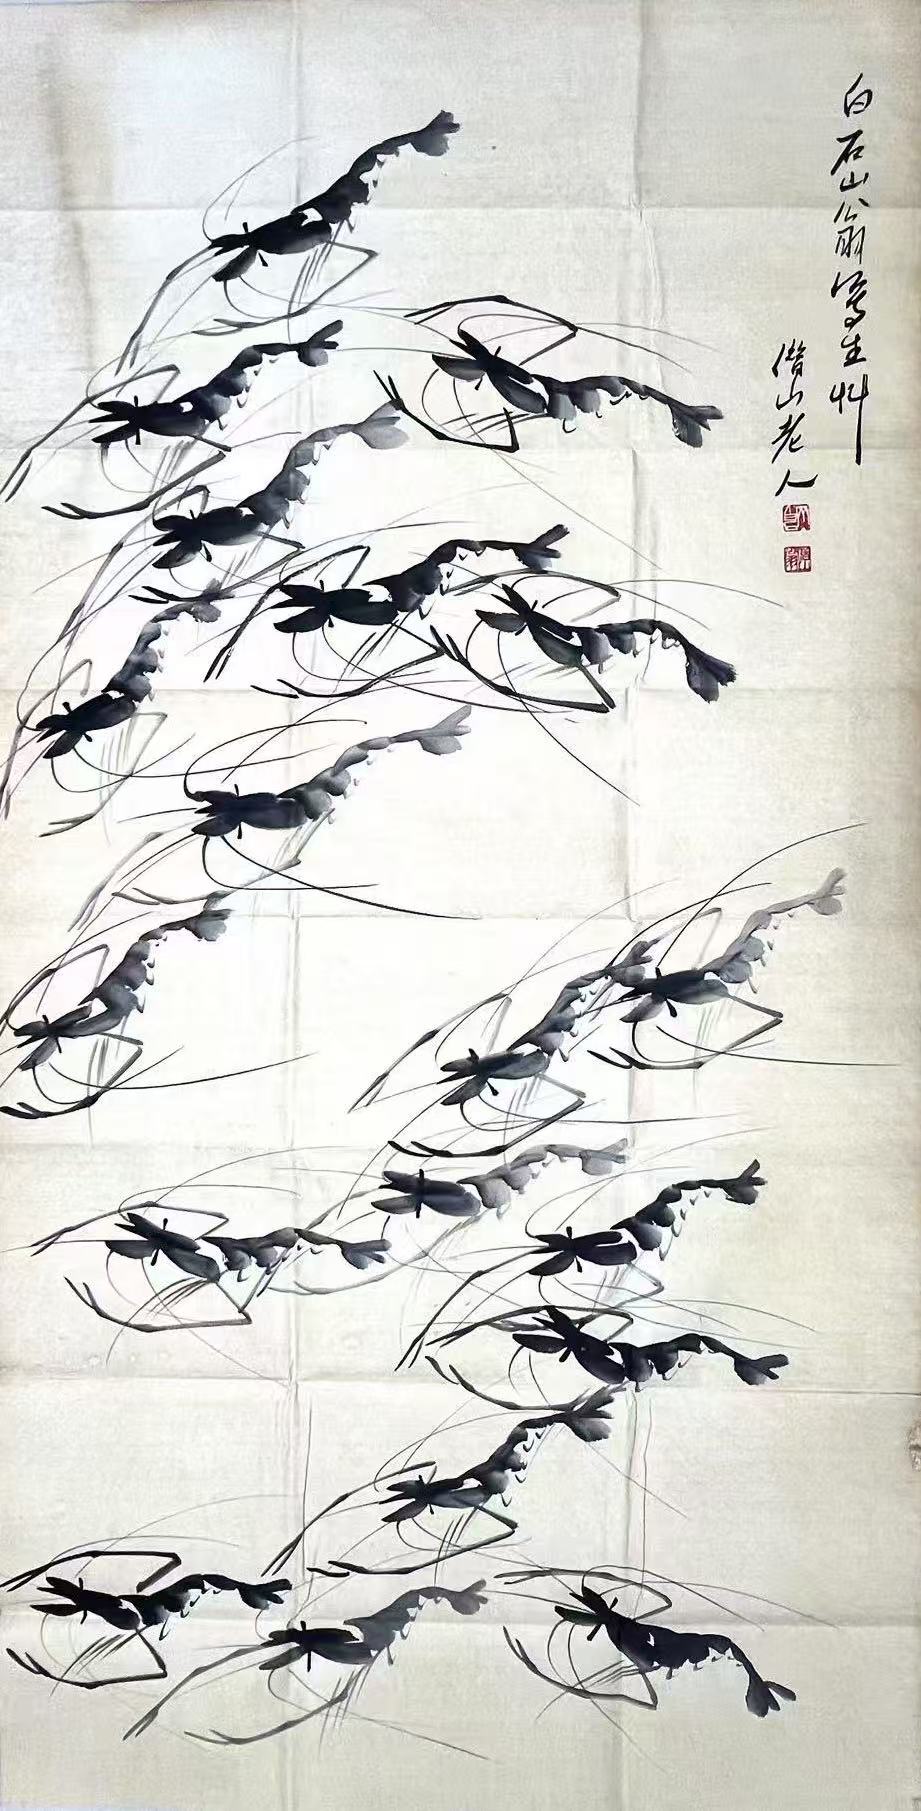 白石山翁写生艸
僭山老人